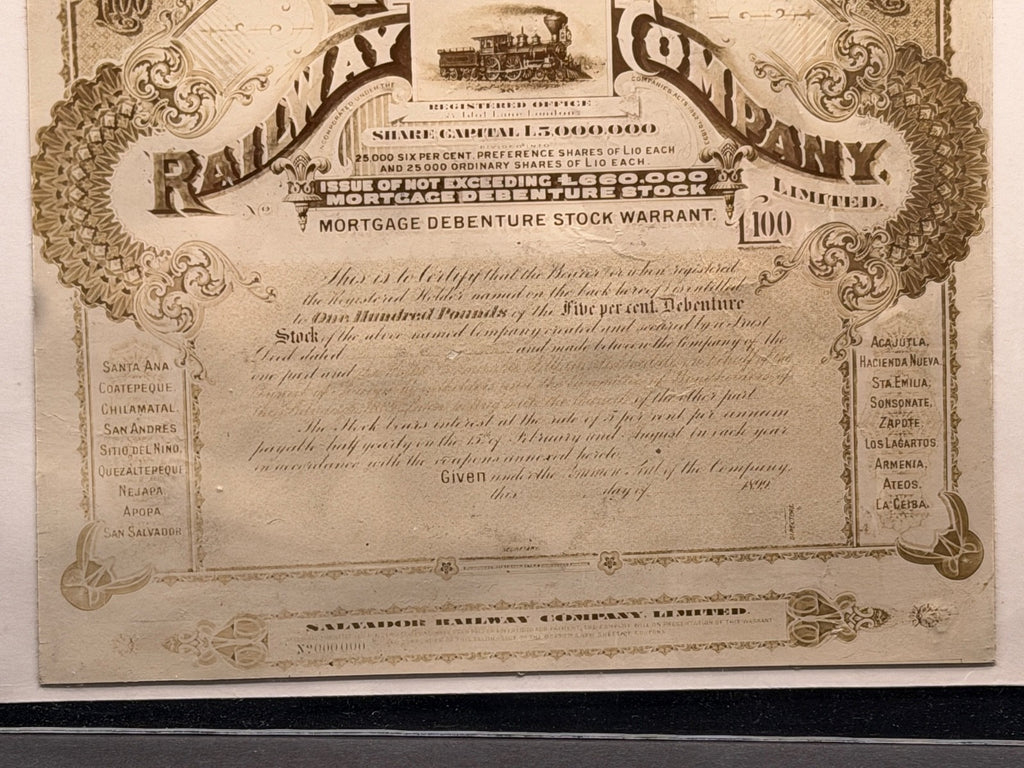 £100
RAILWAY COMPANY.
LIMITED.
INCORPORATED UNDER THE COMPANIES ACTS
REGISTERED OFFICE
Lane London
SHARE CAPITAL £5.000.000
DIVIDED INTO
25.000 SIX PER CENT. PREFERENCE SHARES OF £10 EACH
AND 25000 ORDINARY SHARES OF £10 EACH.
ISSUE OF NOT EXCEEDING £660.000
MORTGAGE DEBENTURE STOCK
No
MORTGAGE DEBENTURE STOCK WARRANT.
£100
This is to Certify that the Bearer or when registered
the Registered Holder named on the back hereof is entitled
to One Hundred Pounds of the Five per cent. Debenture
Stock of the above named Company created and secured by a Trust
Deed dated and made between the Company of the
one part and
of the other part.
The Stock bears interest at the rate of 5 per cent per annum
payable half yearly on the 15th of February and August in each year
in accordance with the coupons annexed hereto.
Given under the Common Seal of the Company,
this day of 1899
DIRECTORS.
SECRETARY.
SANTA ANA
COATEPEQUE.
CHILAMATAL.
SAN ANDRES
SITIO DEL NIÑO.
QUEZALTEPEQUE
NEJAPA.
APOPA.
SAN SALVADOR
ACAJUTLA,
HACIENDA NUEVA.
STA. EMILIA;
SONSONATE,
ZAPOTE,
LOS LAGARTOS.
ARMENIA,
ATEOS.
LA CEIBA.
SALVADOR RAILWAY COMPANY, LIMITED.
No 000.000